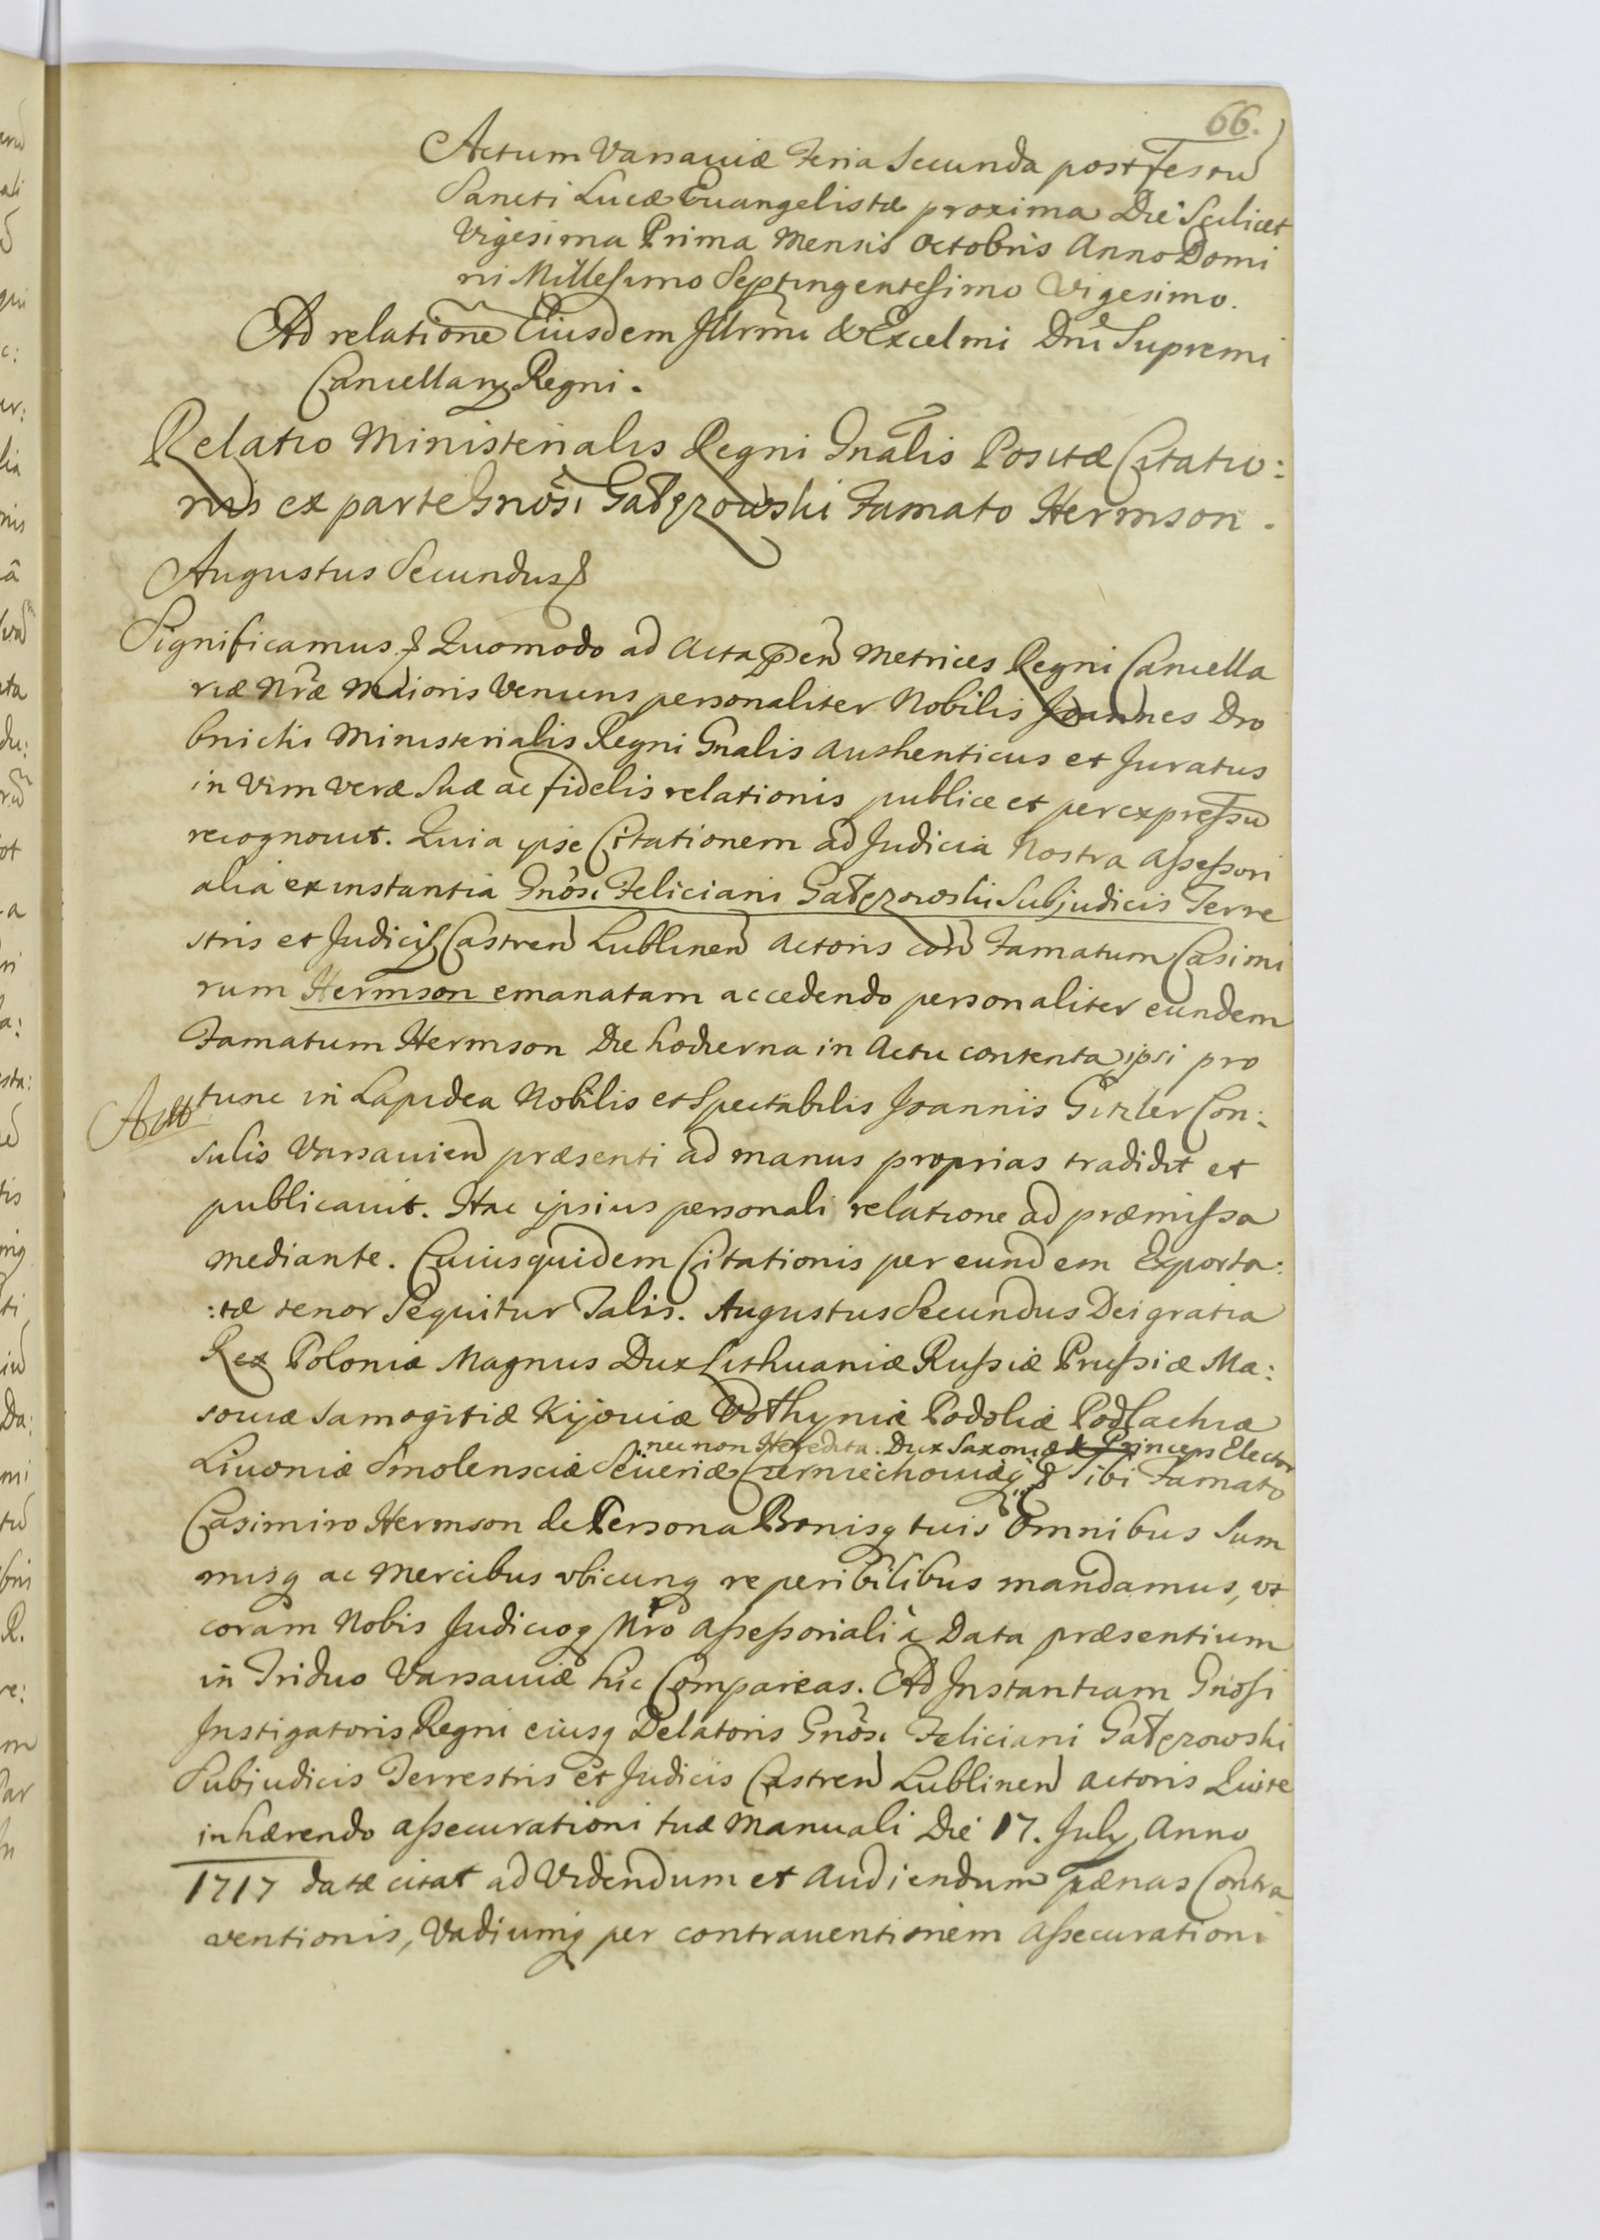 66.
Actum Varsaviæ Feria Secunda post Festū
Sancti Lucæ Euangelistæ proxima Die Scilicet
Vigesima Prima Mensis Octobris Anno Domi
ni Millesimo Septingentesimo Vigesimo.
Ad relationē Eiusdem Illrmi & Excelmi Dnī Supremi
Cancellarij Regni.
Relatio Ministerialis Regni Gnālis Positæ Citatio:
nis ex parte Gnōsi Gałęzowski Famato Hermson.
Augustus Secundus
Significamus Quomodo ad Acta Metrices Regni Cancella
riæ Nræ Maioris Veniens personaliter Nobilis Joannes Dro
bnicki Ministerialis Regni Gnalis Authenticus et Juratus
in Vim veræ suæ ac fidelis relationis publice et per expressū
recognouit. Quia ipse Citationem ad Judicia Nostra Assessori
alia ex instantia Gnōsi Feliciani Gałęzowski Subjudicis Terre
stris et Judicis Castren Lublinen Actoris con Famatum Casimi
rum Hermson emanatam accedendo personaliter eundem
Famatum Hermson Die hodierna in Actu contenta ipsi pro
tunc in Lapidea Nobilis et Spectabilis Joannis Gizler Con:
sulis Varsauien præsenti ad manus proprias tradidit et
publicauit. Hac ipsius personali relatione ad præmissa
mediante. Cuius quidem Citationis per eundem Exporta:
:tæ tenor Sequitur Talis. Augustus Secundus Dei gratia
Rex Poloniæ Magnus Dux Lithuaniæ Russiæ Prussiæ Ma:
souiæ Samogitiæ Kijouiæ Vołhyniæ Podoliæ Podlachiæ
nec non Heredita. Dux Saxoniæ & Princeps Elector
Liuoniæ Smolensciæ Seueriæ Czerniechouiæq Tibi Famato
Casimiro Hermson de Persona Bonisq tuis Omnibus Sum
misq ac Mercibus vbicunq reperibilibus mandamus, vt
coram Nobis Judicioq Nro Assessoriali à Data præsentium
in Triduo Varsauiæ hic Compareas. Ad Instantiam Gnosi
Instigatoris Regni eiusq Delatoris Gnōsi Feliciani Gałęzowski
Subjudicis Terrestris et Judicis Castren Lublinen Actoris Qui te
inhærendo assecurationi tuæ Manuali Die 17. July Anno
1717 datæ citat ad Videndum et Audiendum Pænas Contra
ventionis, Vadiumq per contrauentionem Assecurationi